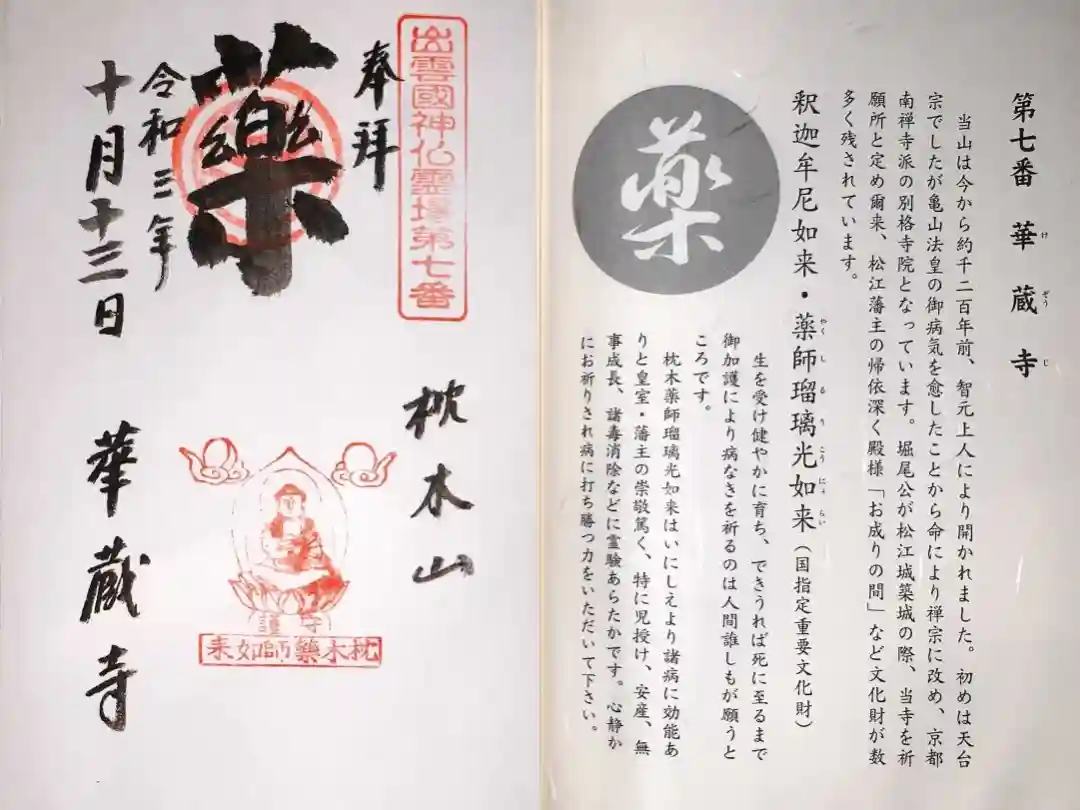 第七番 華蔵寺
けぞうじ
当山は今から約千二百年前、智元上人により開かれました。初めは天台
宗でしたが亀山法皇の御病気を愈したことから命により禅宗に改め、京都
南禅寺派の別格寺院となっています。堀尾公が松江城築城の際、当寺を祈
願所と定め爾来、松江藩主の帰依深く殿様「お成りの間」など文化財が数
多く残されています。
釈迦牟尼如来・薬師瑠璃光如来(国指定重要文化財)
やくしるりこうにょらい
薬
生を受け健やかに育ち、できうれば死に至るまで
御加護により病なきを祈るのは人間誰しもが願うと
ころです。
枕木薬師瑠璃光如来はいにしえより諸病に効能あ
りと皇室・藩主の崇敬篤く、特に児授け、安産、無
事成長、諸毒消除などに霊験あらたかです。心静か
にお祈りされ病に打ち勝つ力をいただいて下さい。
出雲國神仏霊場第七番
奉拝
枕木山
薬
令和三年
十月十三日
華蔵寺
守護
枕木藥師如来